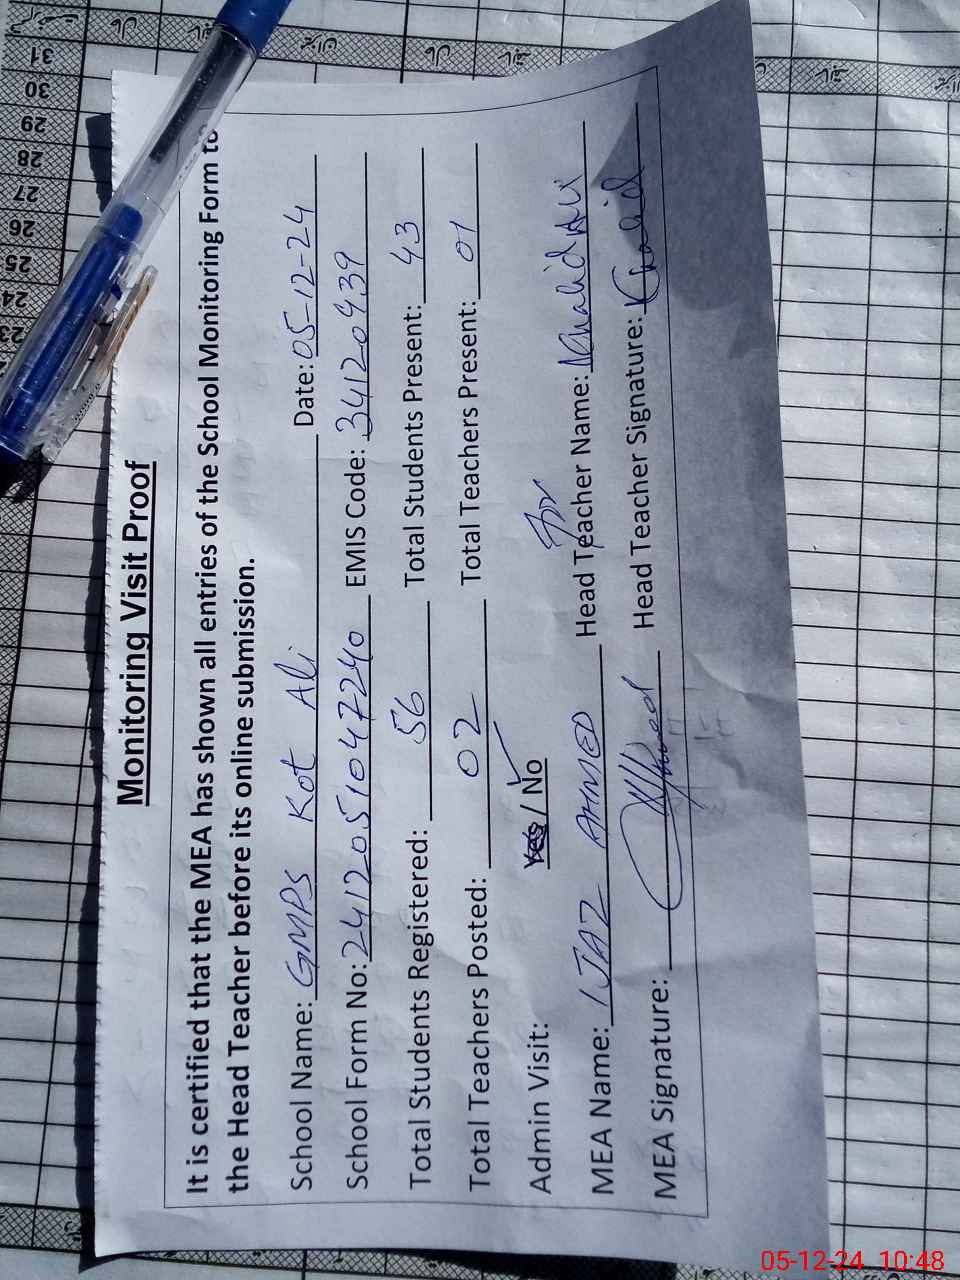 Monitoring Visit Proof
It is certified that the MEA has shown all entries of the School Monitoring Form to
the Head Teacher before its online submission.
School Name: GMPS Kot Ali Date: 05-12-24
School Form No: 2412051047240 EMIS Code: 34120439
Total Students Registered: 56 Total Students Present: 43
Total Teachers Posted: 02 Total Teachers Present: 01
Admin Visit: Yes / No ✓
For
MEA Name: IJAZ AHMED Head Teacher Name: Khalid Ali
MEA Signature: Head Teacher Signature: Khalid
31
30
29
28
27
26
25
24
23
05-12-24 10:48